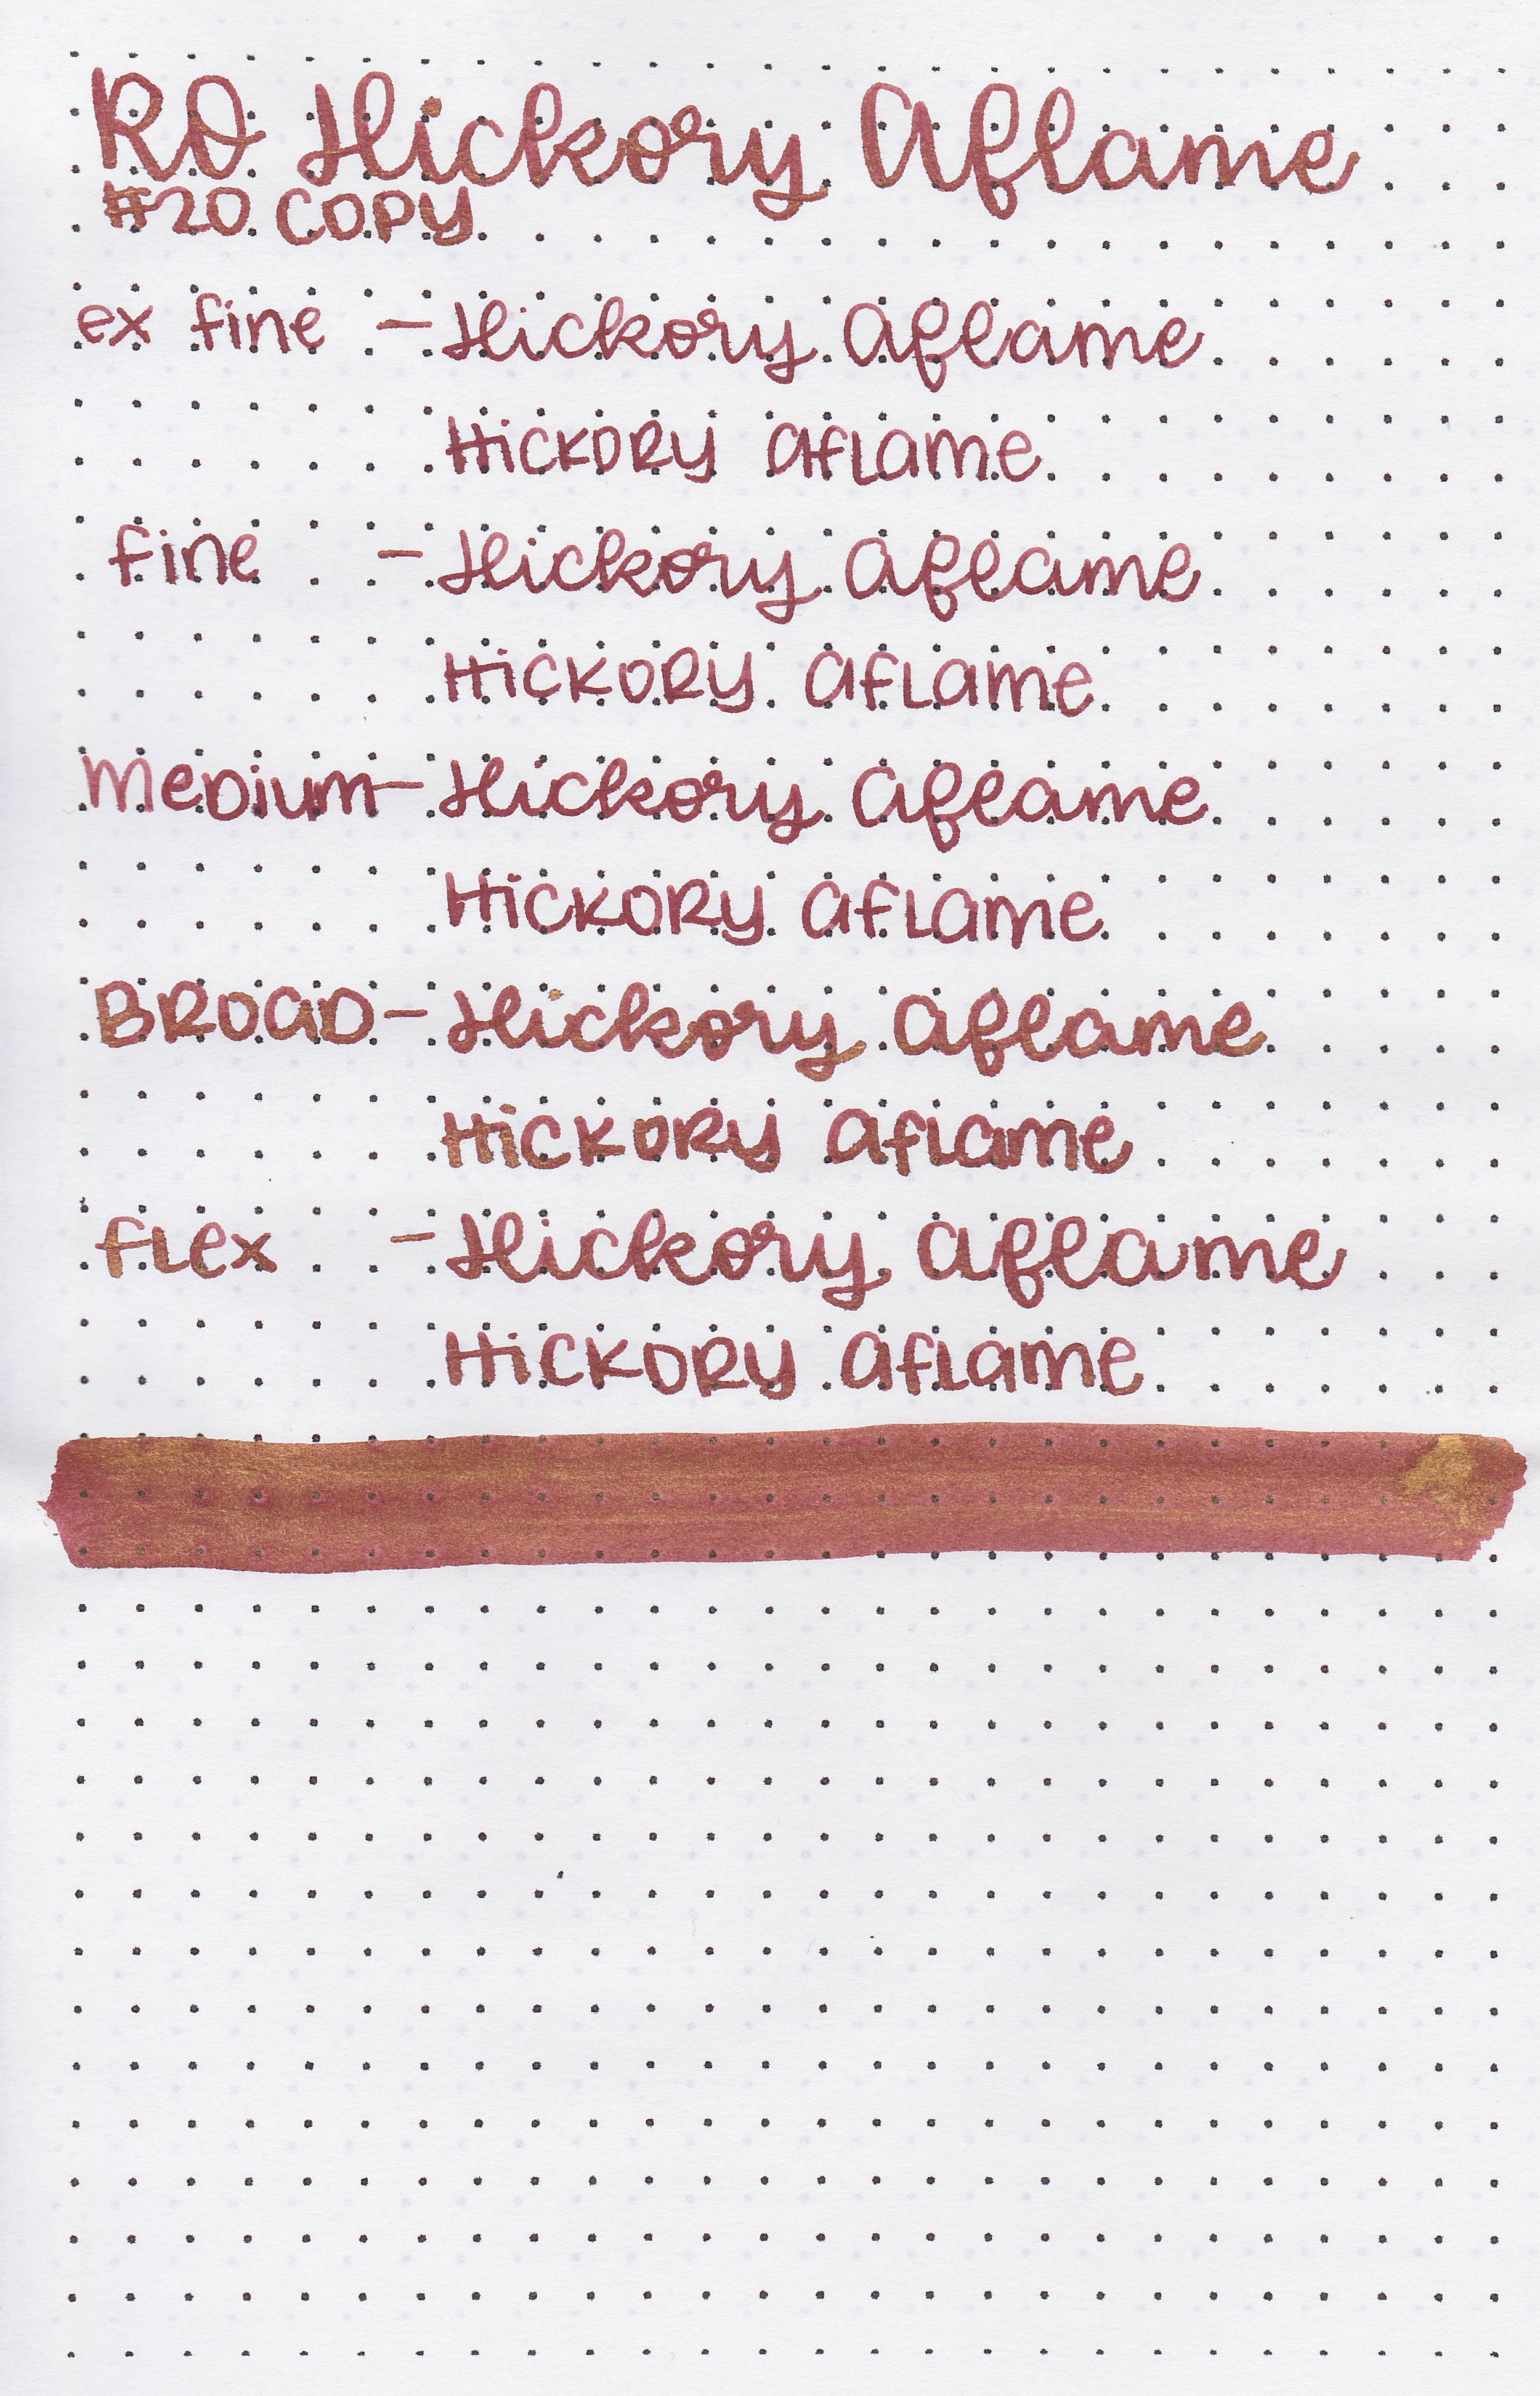 RO Hickory Aflame
#20 COPY
ex fine - Hickory Aflame
HICKORY aflame
fine - Hickory Aflame
HICKORY aflame
Medium - Hickory Aflame
HICKORY aflame
BROAD - Hickory Aflame
HICKORY aflame
flex - Hickory Aflame
HICKORY aflame